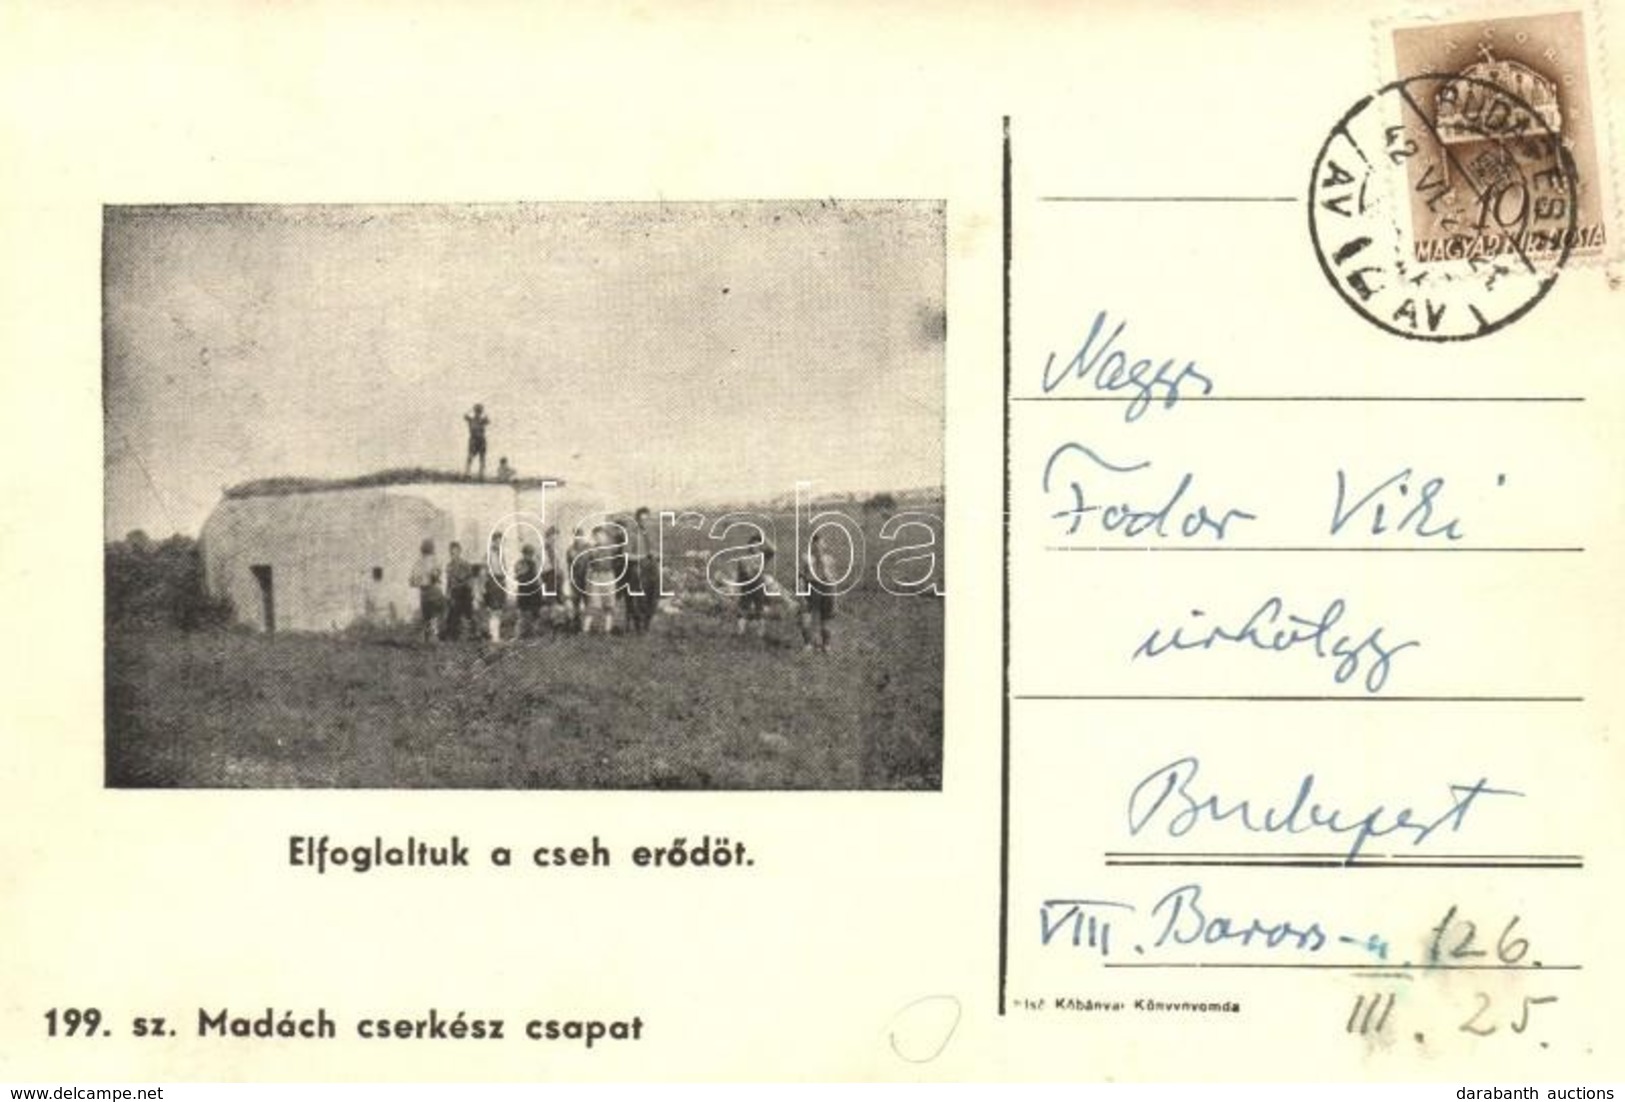 BUDAPEST
42 VI.
10
MAGYAR KIR. POSTA
Elfoglaltuk a cseh erődöt.
199. sz. Madách cserkész csapat
Nagys
Fodor Viki
úrhölgy
Budapest
VIII. Baross-u. 126.
III. 25.
Első Kőbányai Könyvnyomda
darabanth auctions